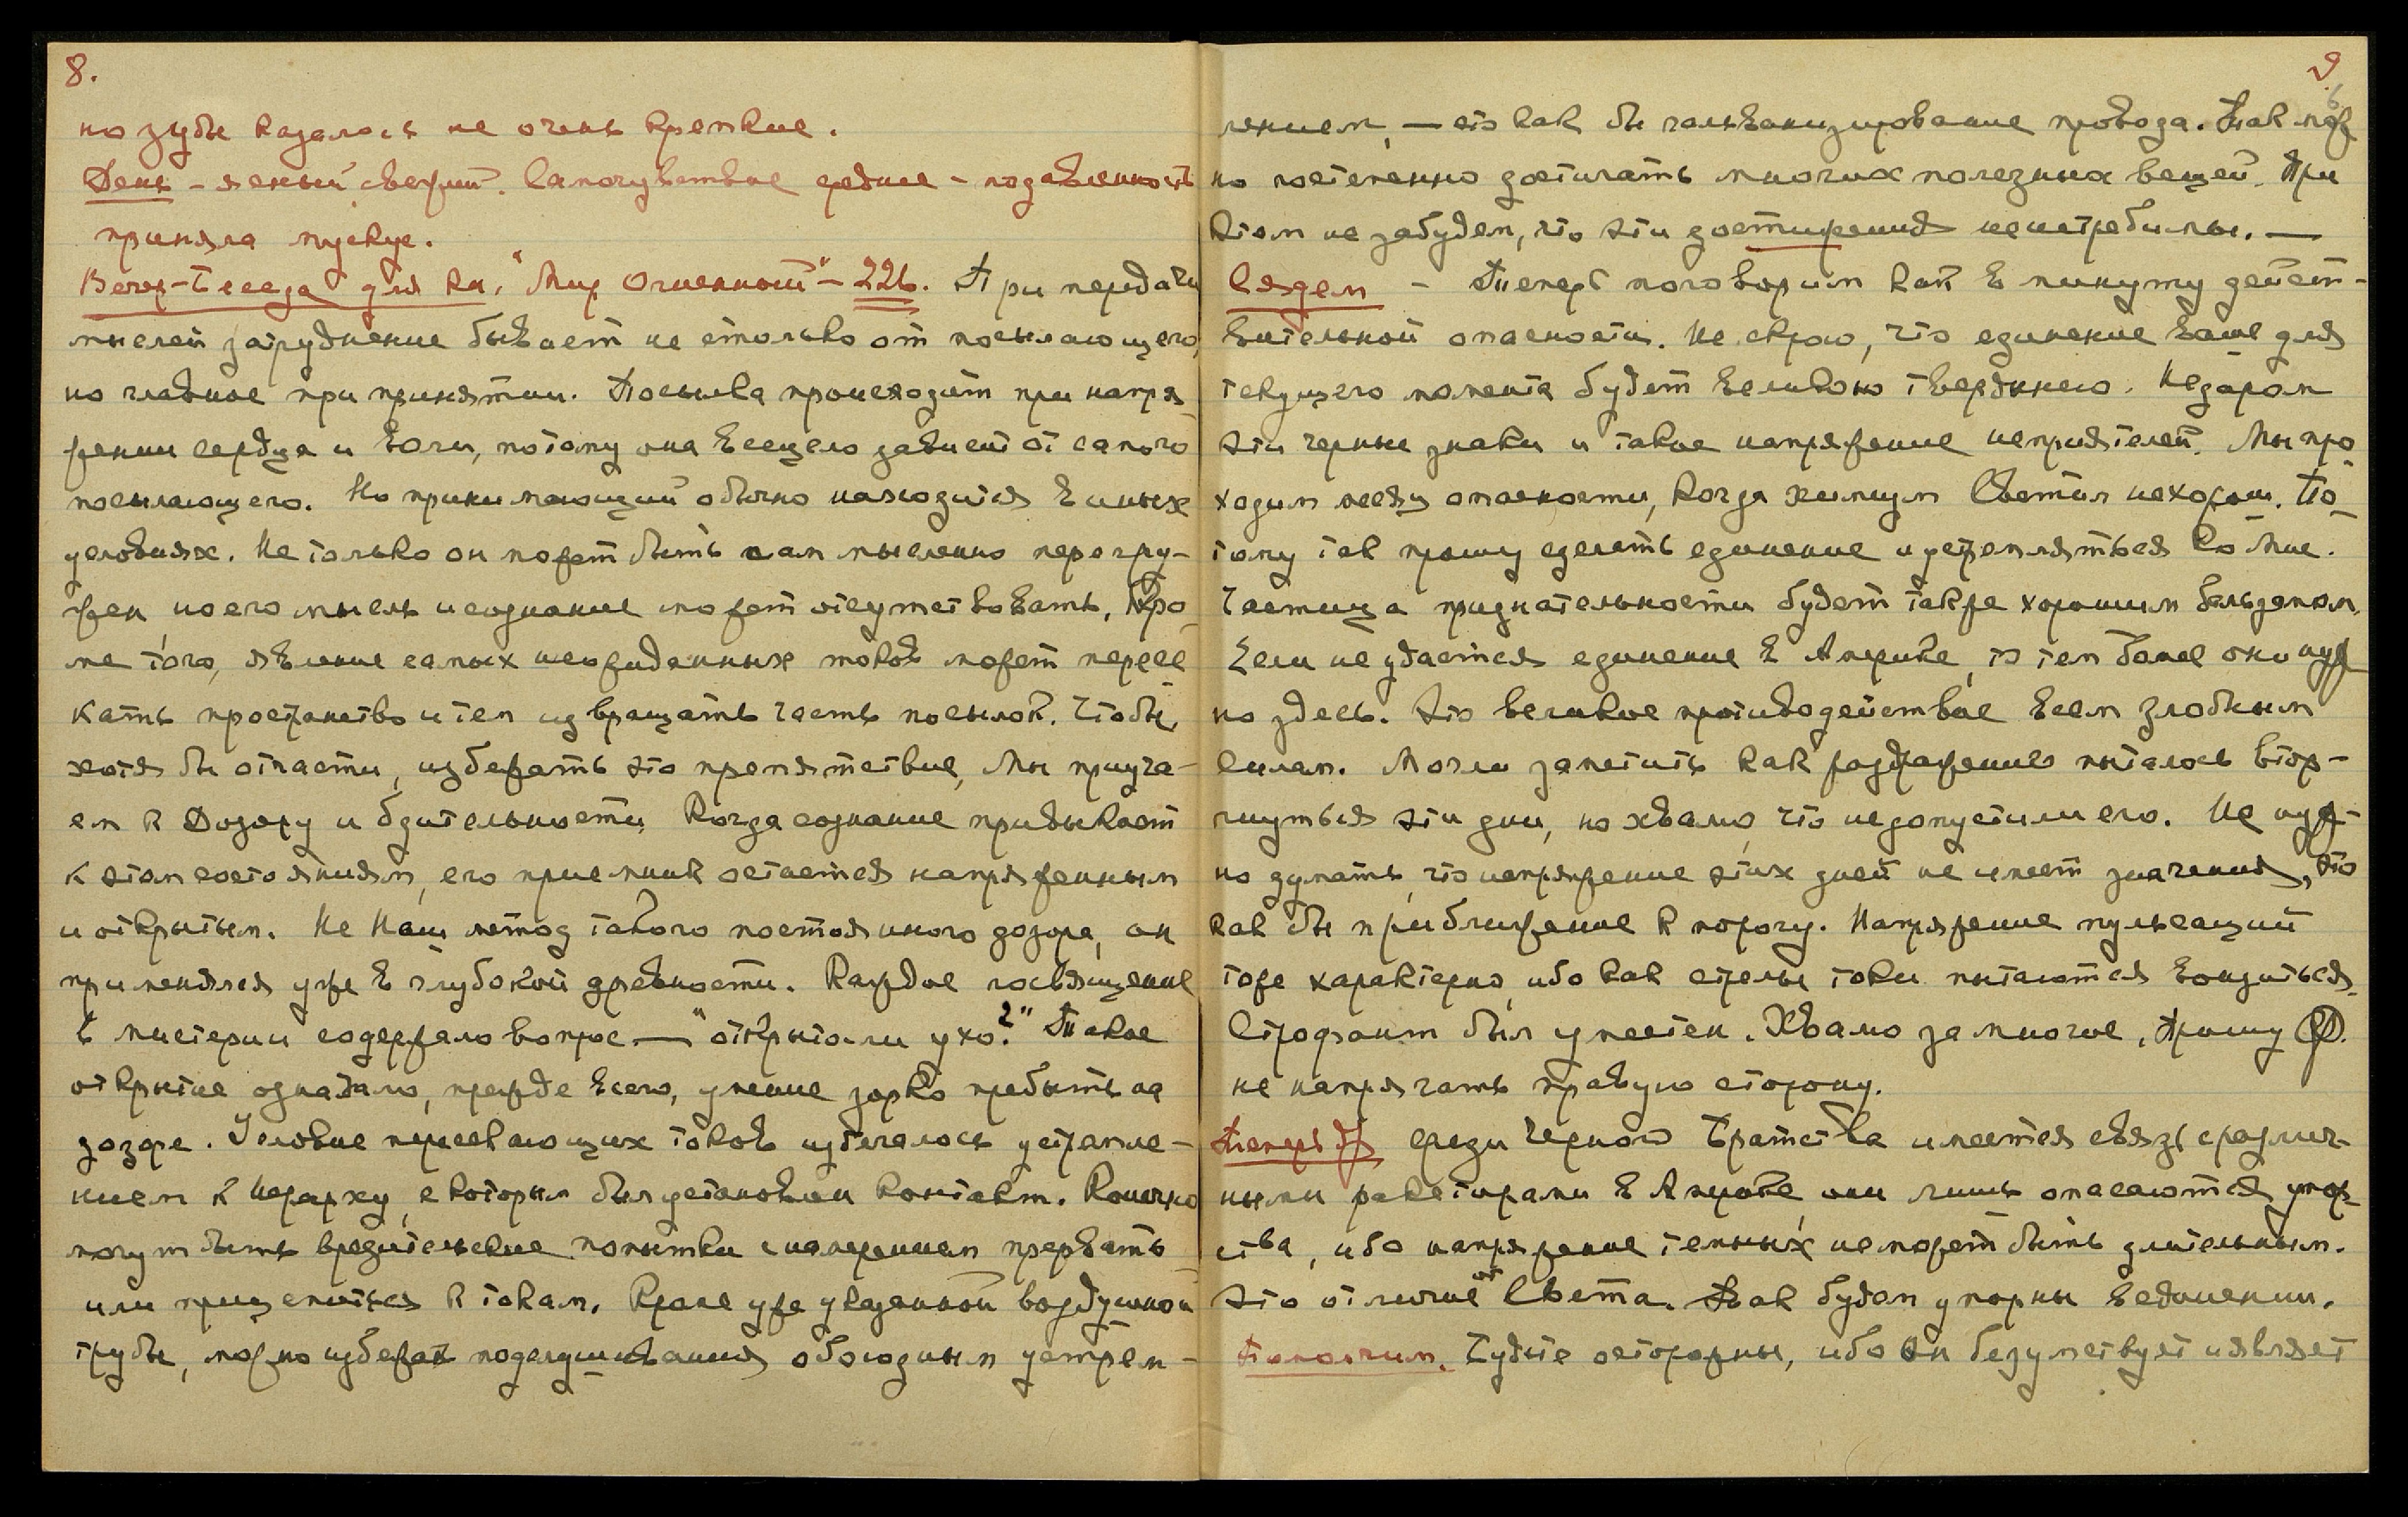 8.
но зубы казались не очень крепкие.
День – ясный свежий. Самочувствие среднее – подавленность
приняла мускус.
Вечер – Беседа для кн. "Мир Огненный" – 226. При передачи
мыслей затруднение бывает не столько от посылающего,
но главное при принятии. Посылка происходит при напря-
жении сердца и воли, потому она всецело зависит от самого
посылающего. Но принимающий обычно находится в иных
условиях. Не только он может быть сам мысленно перегру-
жен, но его мысль и сознание может отсутствовать. Кро-
ме того, явление самых неожиданных токов может пересе-
кать пространство и тем извращать часть посылок. Чтобы,
хотя бы отчасти, избежать это препятствие, Мы приуча-
ем к Дозору и бдительности. Когда сознание привыкает
к этим состояниям, его приемник остается напряженным
и открытым. Не Наш метод такого постоянного дозора, он
применялся уже в глубокой древности. Каждое посвящение
в мистерии содержало вопрос – "открыто ли ухо?" Такое
открытие означало, прежде всего, умение зорко пребыть на
дозоре. Условие пересекающих токов избегалось устремле-
нием к Иерарху, с которым был установлен контакт. Конечно
могут быть вредительские попытки с намерением прервать
или прицепиться к токам. Кроме уже указанной воздушной
трубы, можно избежать подслушивания обоюдным устрем-
9
лением, – это как бы гальванизирование провода. Так мож-
но постепенно достигать многих полезных вещей. При
этом не забудем, что эти достижения неистребимы. –
Сядем – Теперь поговорим как в минуту действ-
вительной опасности. Не скрою, что единение ваше для
текущего момента будет великою твердынею. Недаром
эти черные знаки и такое напряжение неприятелей. Мы про-
ходим месяц опасности, когда химизм Светил нехорош. По-
тому так прошу сделать единение и устремляться ко Мне.
Частица признательности будет также хорошим бальзамом.
Если не удается единение в Америке, то тем более оно нуж-
но здесь. Это великое противодействие всем злобным
силам. Могли заметить как раздражение пыталось втор-
гнуться эти дни, но хвалю, что не допустили его. Не нуж-
но думать, что напряжение этих дней не имеет значения, это
как бы приближение к порогу. Напряжение пульсаций
тоже характерно, ибо как стрелы токи пытаются вонзиться.
Строфант был уместен. Хвалю за многое, Прошу Ф.
не напрягать правую сторону.
Теперь др. среди Черного Братства имеется связь с различ-
ными ракетирами в Америке, они лишь опасаются упор-
ства, ибо напряжение темных не может быть длительным.
Это отличие от Света. Так будем упорны в единении.
Помолчим. Будьте осторожны, ибо он безумствует и являет